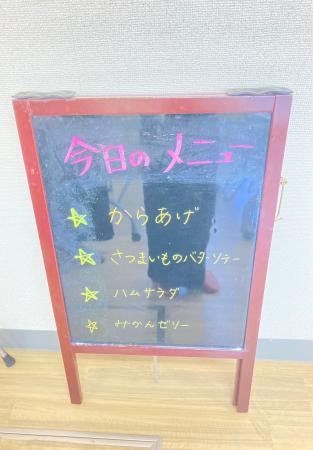 今日のメニュー
☆ からあげ
☆ さつまいものバターソテー
☆ ハムサラダ
☆ みかんゼリー